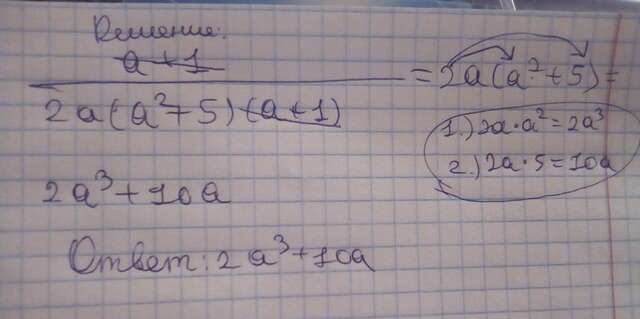 Решение:
a + 1
2a(a²+5)(a+1) = 2a(a²+5)=
1.) 2a·a²=2a³
2.) 2a·5=10a
2a³+10a
Ответ: 2a³+10a